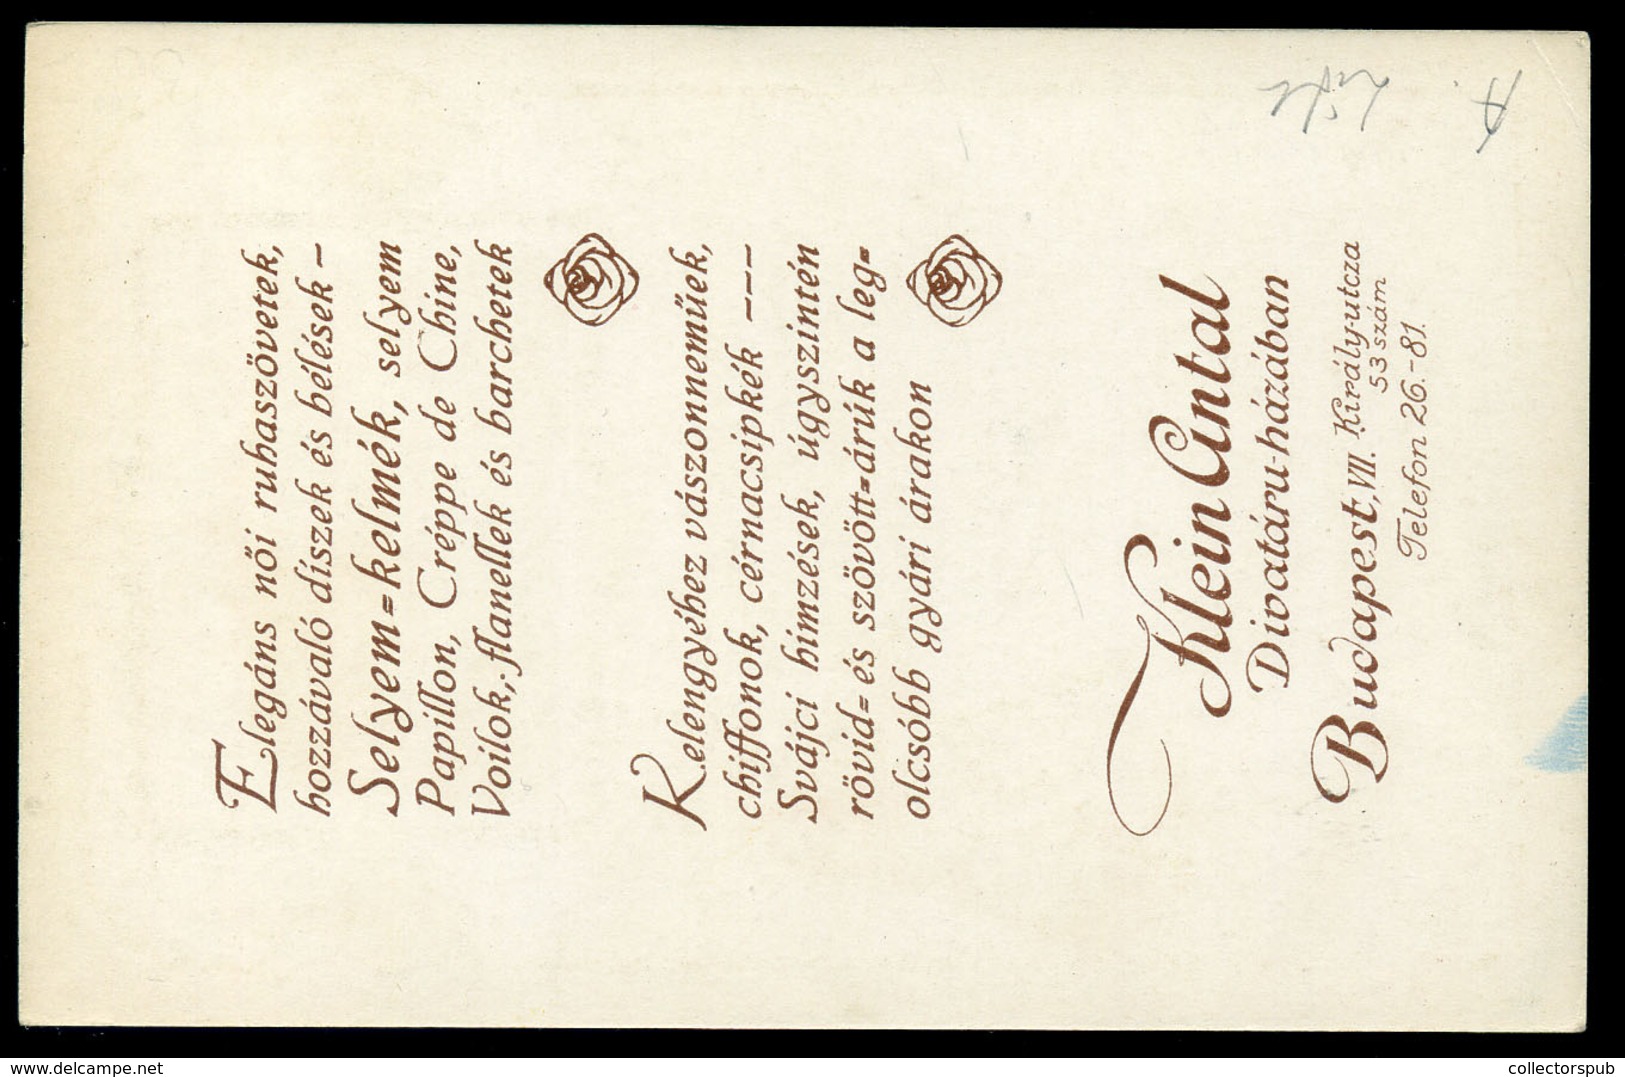 Elegáns női ruhaszövetek,
hozzávaló díszek és bélések –
Selyem=kelmék, selyem
Papillon, Créppe de Chine,
Voilok, flanellek és barchetek
Kelengyéhez vászonneműek,
chiffonok, cérnacsipkék –––
Svájci hímzések, úgyszintén
rövid=és szövött=árúk a leg=
olcsóbb gyári árakon
Klein Antal
Divatáru-házában
Budapest, VII. Király-utcza
53 szám
Telefon 26.-81.
www.delcampe.net
collectorspub